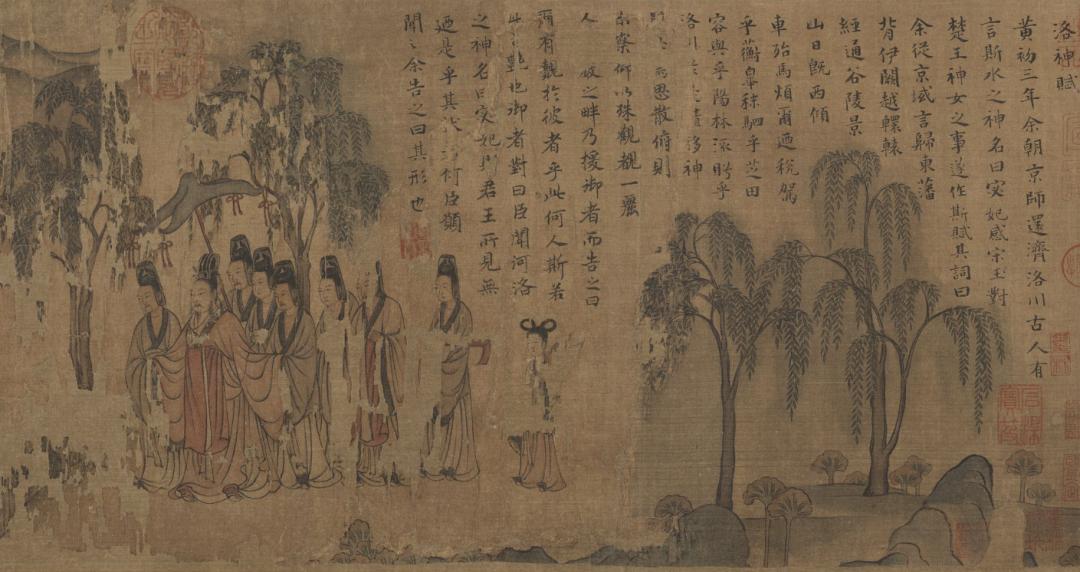 洛神賦
黃初三年余朝京師還濟洛川古人有
言斯水之神名曰宓妃感宋玉對
楚王神女之事遂作斯賦其詞曰
余從京域言歸東藩
背伊闕越轘轅
經通谷陵景
山日旣西傾
車殆馬煩爾迺稅駕
乎蘅皋秣駟乎芝田
容與乎陽林流眄乎
洛川於移神
思散俯則
察仰以殊觀覩一麗
人之畔乃援御者而告之曰
爾有覿於彼者乎此何人斯若
此艷也御者對曰臣聞河洛
之神名曰宓妃則君王所見無
迺是乎其狀何臣願
聞之余告之曰其形也